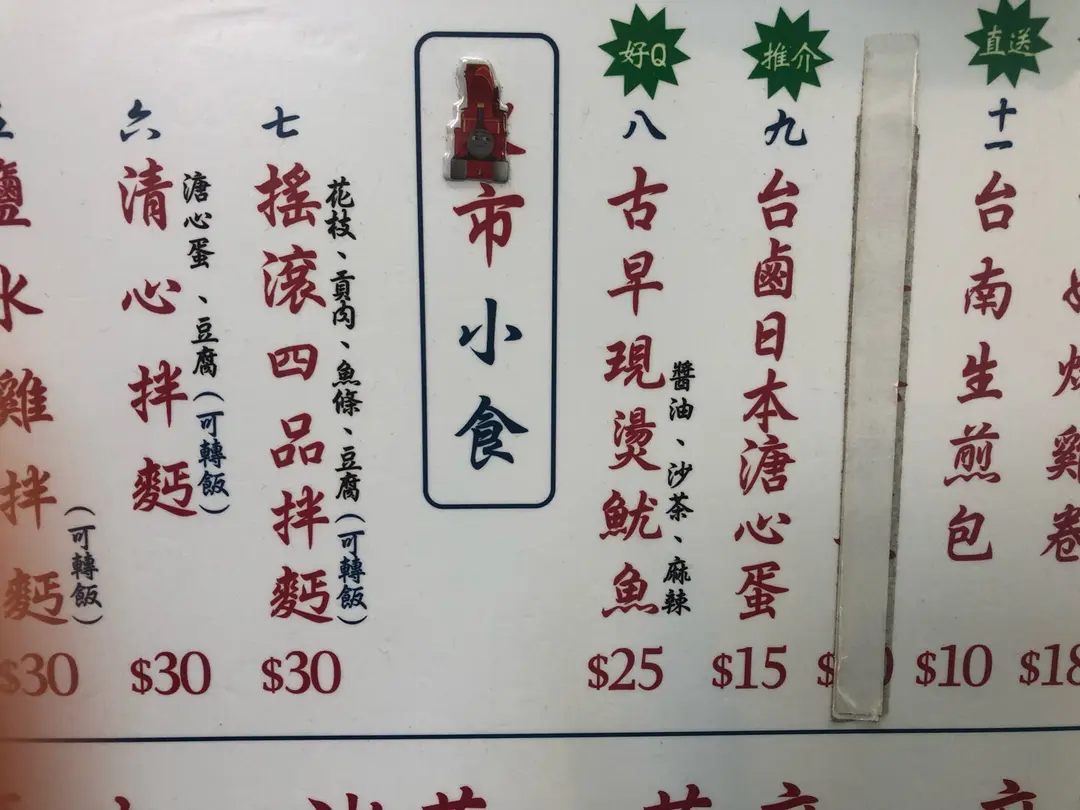 鹽水雞拌麪
(可轉飯)
$30
六
清心拌麪
溏心蛋、豆腐(可轉飯)
$30
七
搖滾四品拌麪
花枝、貢肉、魚條、豆腐(可轉飯)
$30
市小食
好Q
八
古早現燙魷魚
醬油、沙茶、麻辣
$25
推介
九
台鹵日本溏心蛋
$15
直送
十一
台南生煎包
$10
雞卷
$18